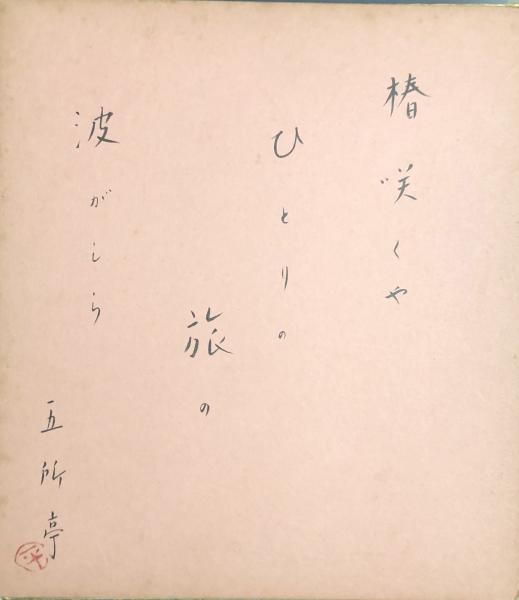 椿咲くや
ひとりの
旅の
波がしら
五所亭